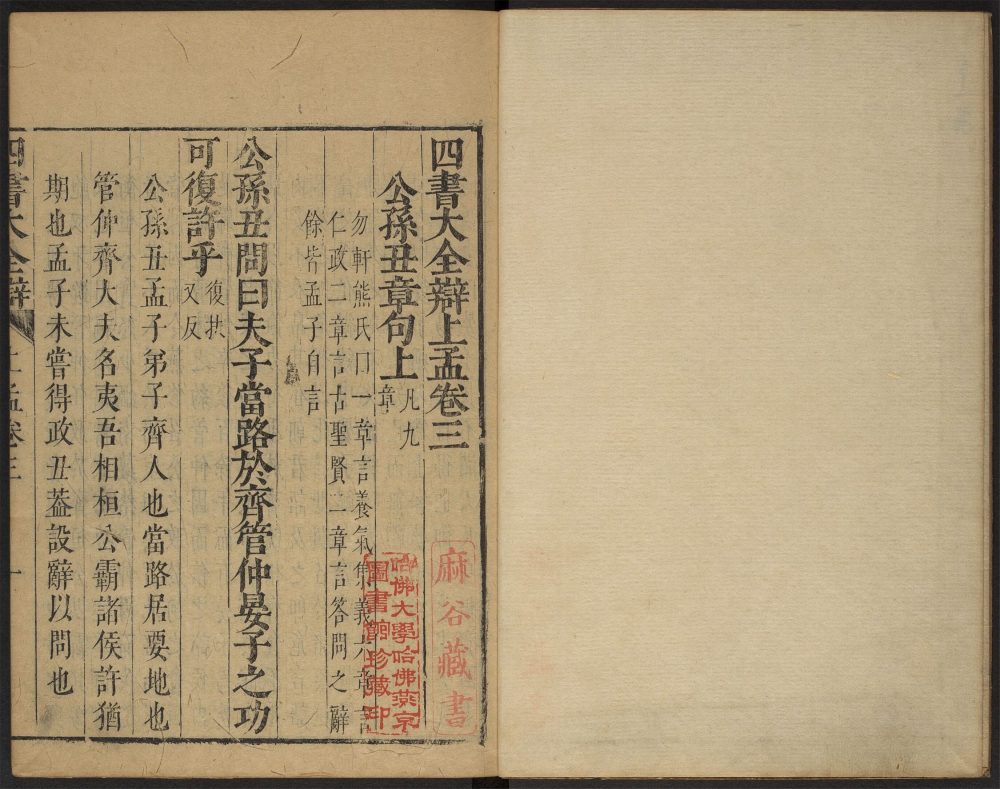 四書大全辯上孟卷三
公孫丑章句上 凡九
章
勿軒熊氏曰一章言養氣集義六章言
仁政二章言古聖賢二章言答問之辭
餘皆孟子自言
公孫丑問曰夫子當路於齊管仲晏子之功
可復許乎 復扶
又反
公孫丑孟子弟子齊人也當路居要地也
管仲齊大夫名夷吾相桓公霸諸侯許猶
期也孟子未嘗得政丑葢設辭以問也
四書大全辯 上孟卷三 一
麻谷藏書
哈佛大學哈佛燕京
圖書館珍藏印